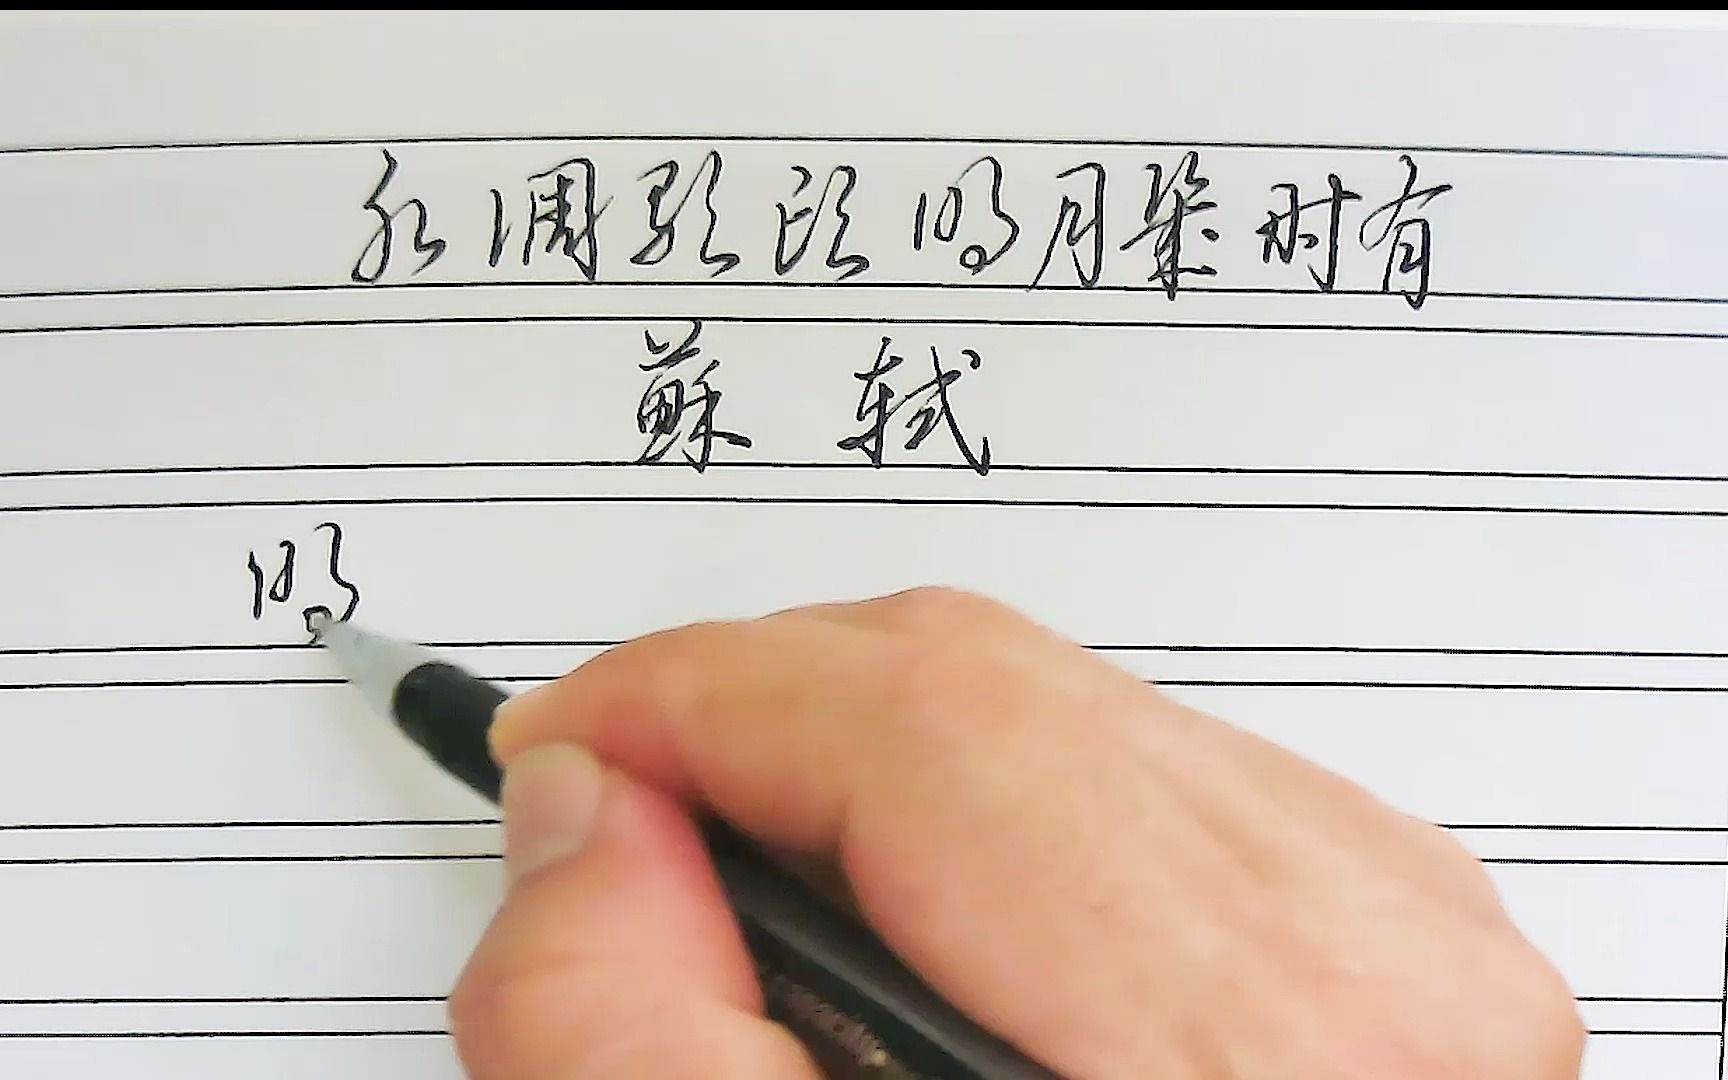 水调歌头 明月几时有
蘇軾
明